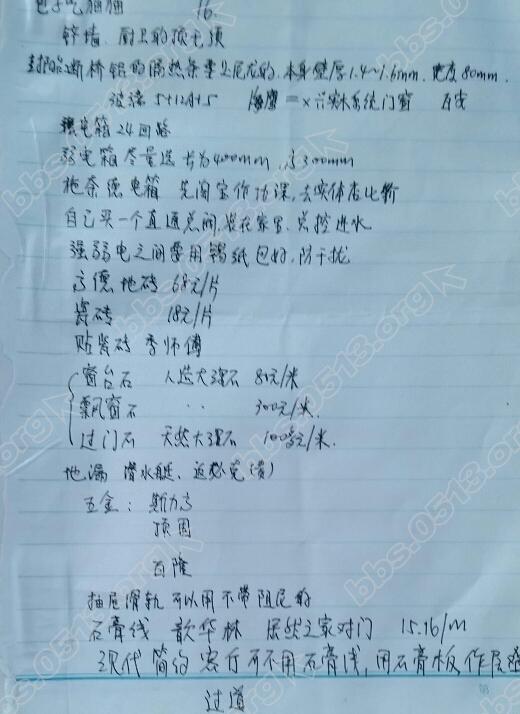 16.
砖墙、厨卫的顶毛须
封阳台断桥铝的隔热条要是尼龙的.本身壁厚1.4~1.6mm.宽度80mm.
玻璃5+12A+5 海鹰 二×六实木系统门窗
强电箱24回路
弱电箱尽量选长为400mm.高300mm
施奈德电箱 先淘宝作功课,去实体店比价
自己买一个直通总阀,装在家里.总控进水
强弱电之间要用锡纸包好,防干扰
高德地砖 68元/片
瓷砖 18元/片
贴瓷砖 李师傅
窗台石 人造大理石 80元/米
飘窗石 ·· 300元/米.
过门石 天然大理石 100元/米.
地漏 潜水艇、返必克(贵)
五金:斯力高
顶固
百隆
抽屉滑轨可以用不带阻尼的
石膏线 歆华林 居然之家对门 15.16/m
现代简约客厅可不用石膏线,用石膏板作
过道
bbs.0513.org